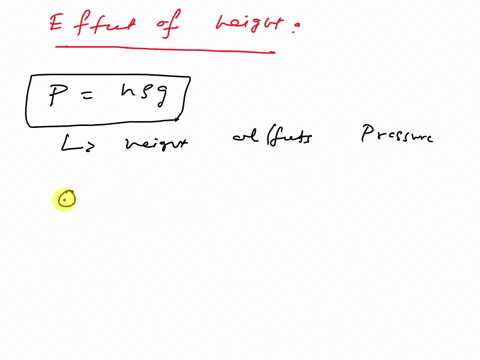 Effect of height:
P = hρg
↳ height affects Pressure